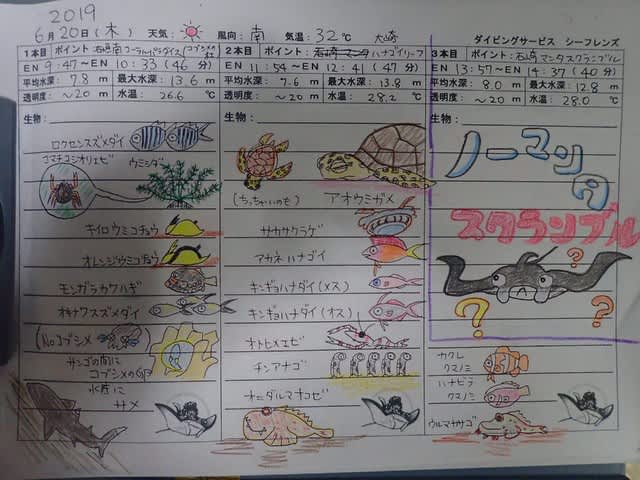 2019
6月20日(木) 天気: 風向: 南 気温: 32℃ 大崎
ダイビングサービス シーフレンズ
1本目 ポイント:
EN 9:47〜EN 10:33 (46分)
平均水深: 7.8 m 最大水深: 13.6 m
透明度: 〜20 m 水温: 26.6 ℃
生物:
ロクセンスズメダイ
コマチコシオリエビ ウミシダ
キイロウミコチョウ
オレンジウミコチョウ
モンガラカワハギ
オキナワスズメダイ
(No コブシメ
サンゴの間に
コブシメの卵
水底に
サメ
2本目 ポイント: ハナゴイリーフ
EN 11:54〜EN 12:41 (47分)
平均水深: 7.6 m 最大水深: 13.8 m
透明度: 〜20 m 水温: 28.2 ℃
生物:
(ちっちゃいのも) アオウミガメ
サカサクラゲ
アカネハナゴイ
キンギョハナダイ(メス)
キンギョハナダイ(オス)
オトヒメエビ
チンアナゴ
オニダルマオコゼ
3本目 ポイント: 石崎マンタスクランブル
EN 13:57〜EN 14:37 (40分)
平均水深: 8.0 m 最大水深: 12.8 m
透明度: 〜20 m 水温: 28.0 ℃
生物:
ノーマンタ
スクランブル
?
? ?
カクレ
クマノミ
ハナビラ
クマノミ
ウルマカサゴ